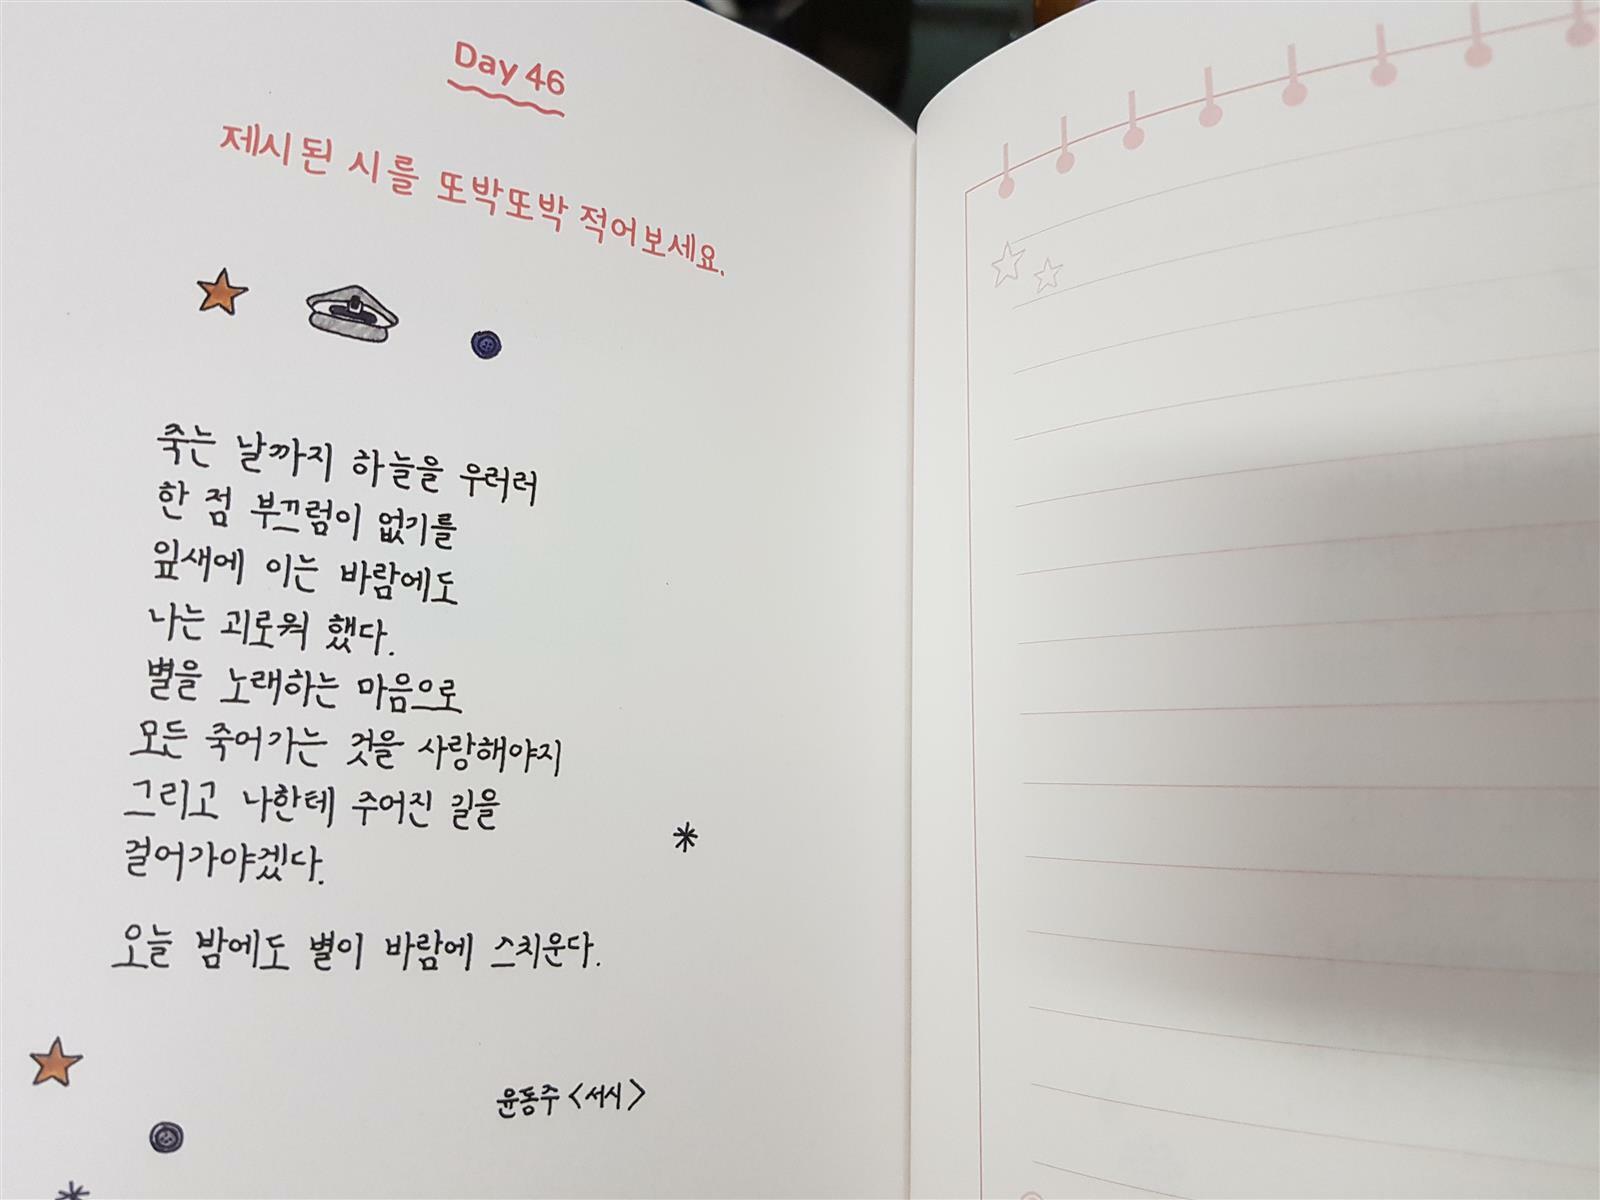 Day 46
제시된 시를 또박또박 적어보세요.
죽는 날까지 하늘을 우러러
한 점 부끄럼이 없기를
잎새에 이는 바람에도
나는 괴로워 했다.
별을 노래하는 마음으로
모든 죽어가는 것을 사랑해야지
그리고 나한테 주어진 길을
걸어가야겠다.
오늘 밤에도 별이 바람에 스치운다.
윤동주 <서시>